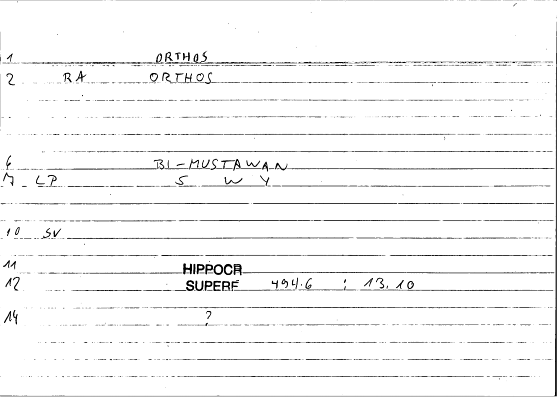 1 ORTHOS
2 RA ORTHOS
6 BI-MUSTAWAN
7 LP S W Y
10 SV
11 HIPPOCR
12 SUPERF 494.6 : 13.10
14 ?